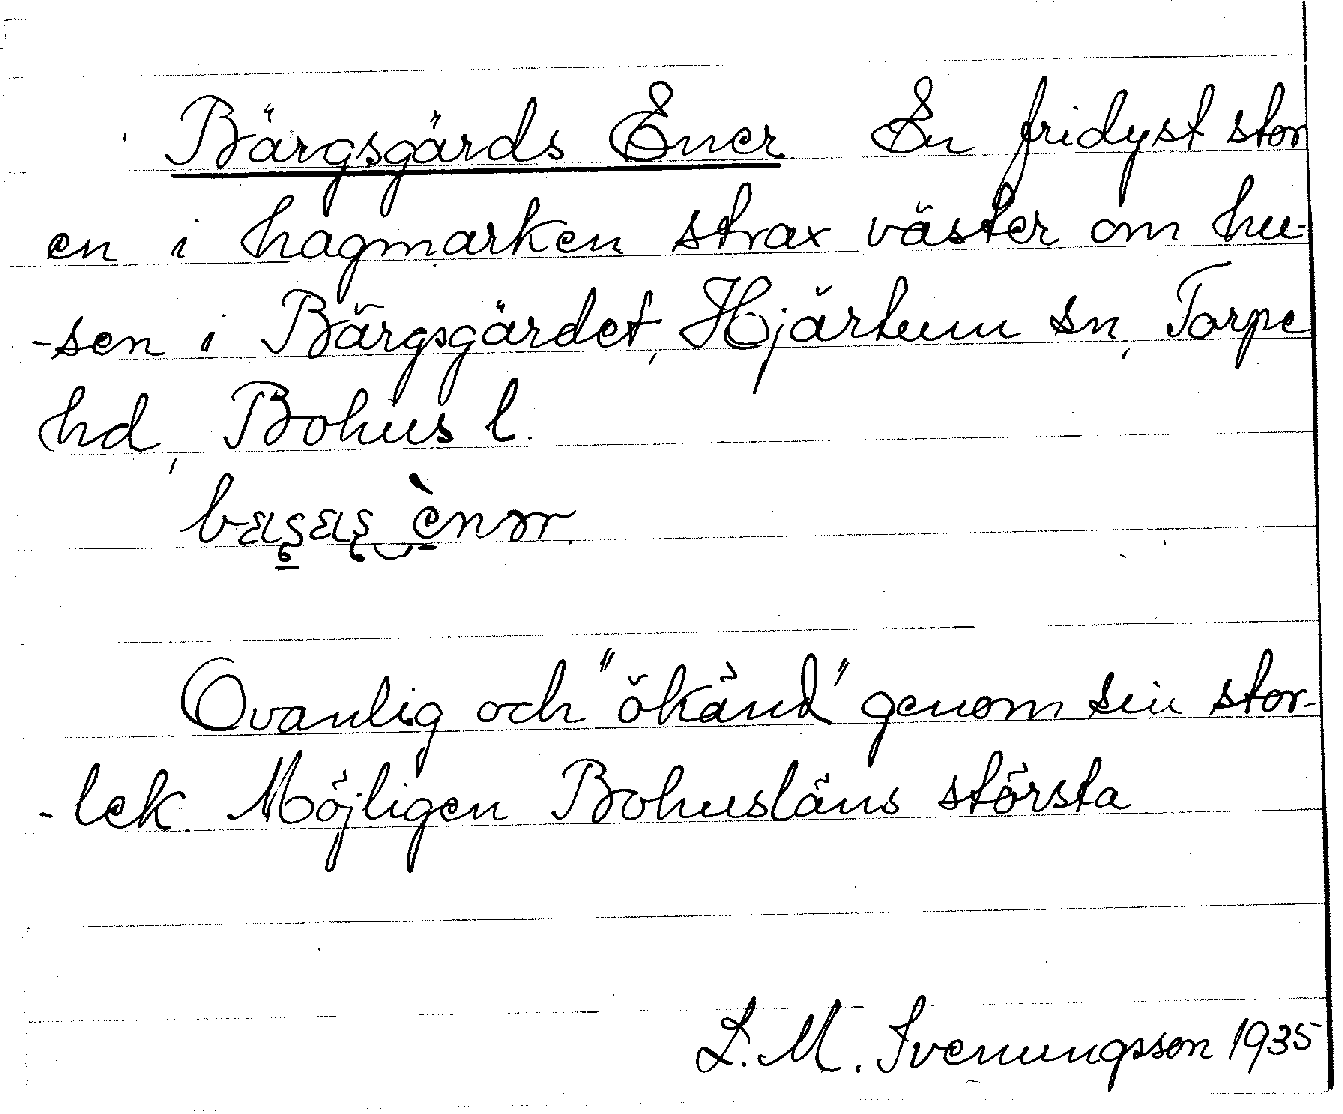 Bärgsgärds Ener En fridyst stor
en i hagmarken strax väster om hu-
-sen i Bärgsgärdet, Hjärtum sn, Torpe
hd, Bohus l.
Ovanlig och "ökänd" genom sin stor-
-lek. Möjligen Bohusläns största
L. M. Svenungsson 1935